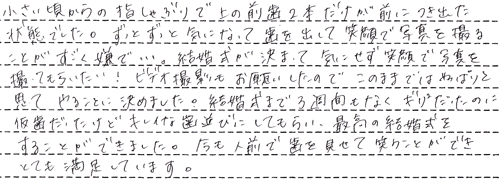 小さい頃からの指しゃぶりで上の前歯2本だけが前につき出た
状態でした。ずっとずっと気になって歯を出して笑顔で写真を撮る
ことがすごく嫌で…。結婚式が決まって気にせず笑顔で写真を
撮ってもらいたい！ビデオ撮影もお願いしたのでこのままではやっぱりと
思て やることに決めました。結婚式まで3週間もなくギリギリだったのに
仮歯だったけどキレイな歯並びにしてもらい、最高の結婚式を
することができました。今も人前で歯を見せて笑うことができ
とても満足しています。